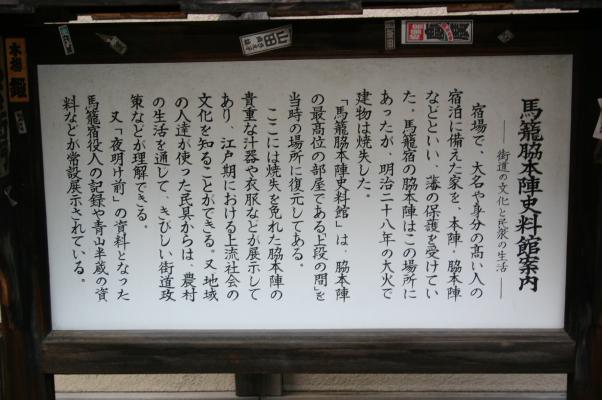 馬籠脇本陣史料館案内
――街道の文化と民衆の生活――
宿場で、大名や身分の高い人の
宿泊に備えた家を、本陣・脇本陣
などといい、藩の保護を受けてい
た。馬籠宿の脇本陣はこの場所に
あったが、明治二十八年の大火で
建物は焼失した。
「馬籠脇本陣史料館」は、脇本陣
の最高位の部屋である「上段の間」を
当時の場所に復元してある。
ここには焼失を免れた脇本陣の
貴重な汁器や衣服などが展示して
あり、江戸期における上流社会の
文化を知ることができる。又地域
の人達が使った民具からは、農村
の生活を通して、きびしい街道政
策などが理解できる。
又「夜明け前」の資料となった
馬籠宿役人の記録や青山半蔵の資
料などが常設展示されている。
山田